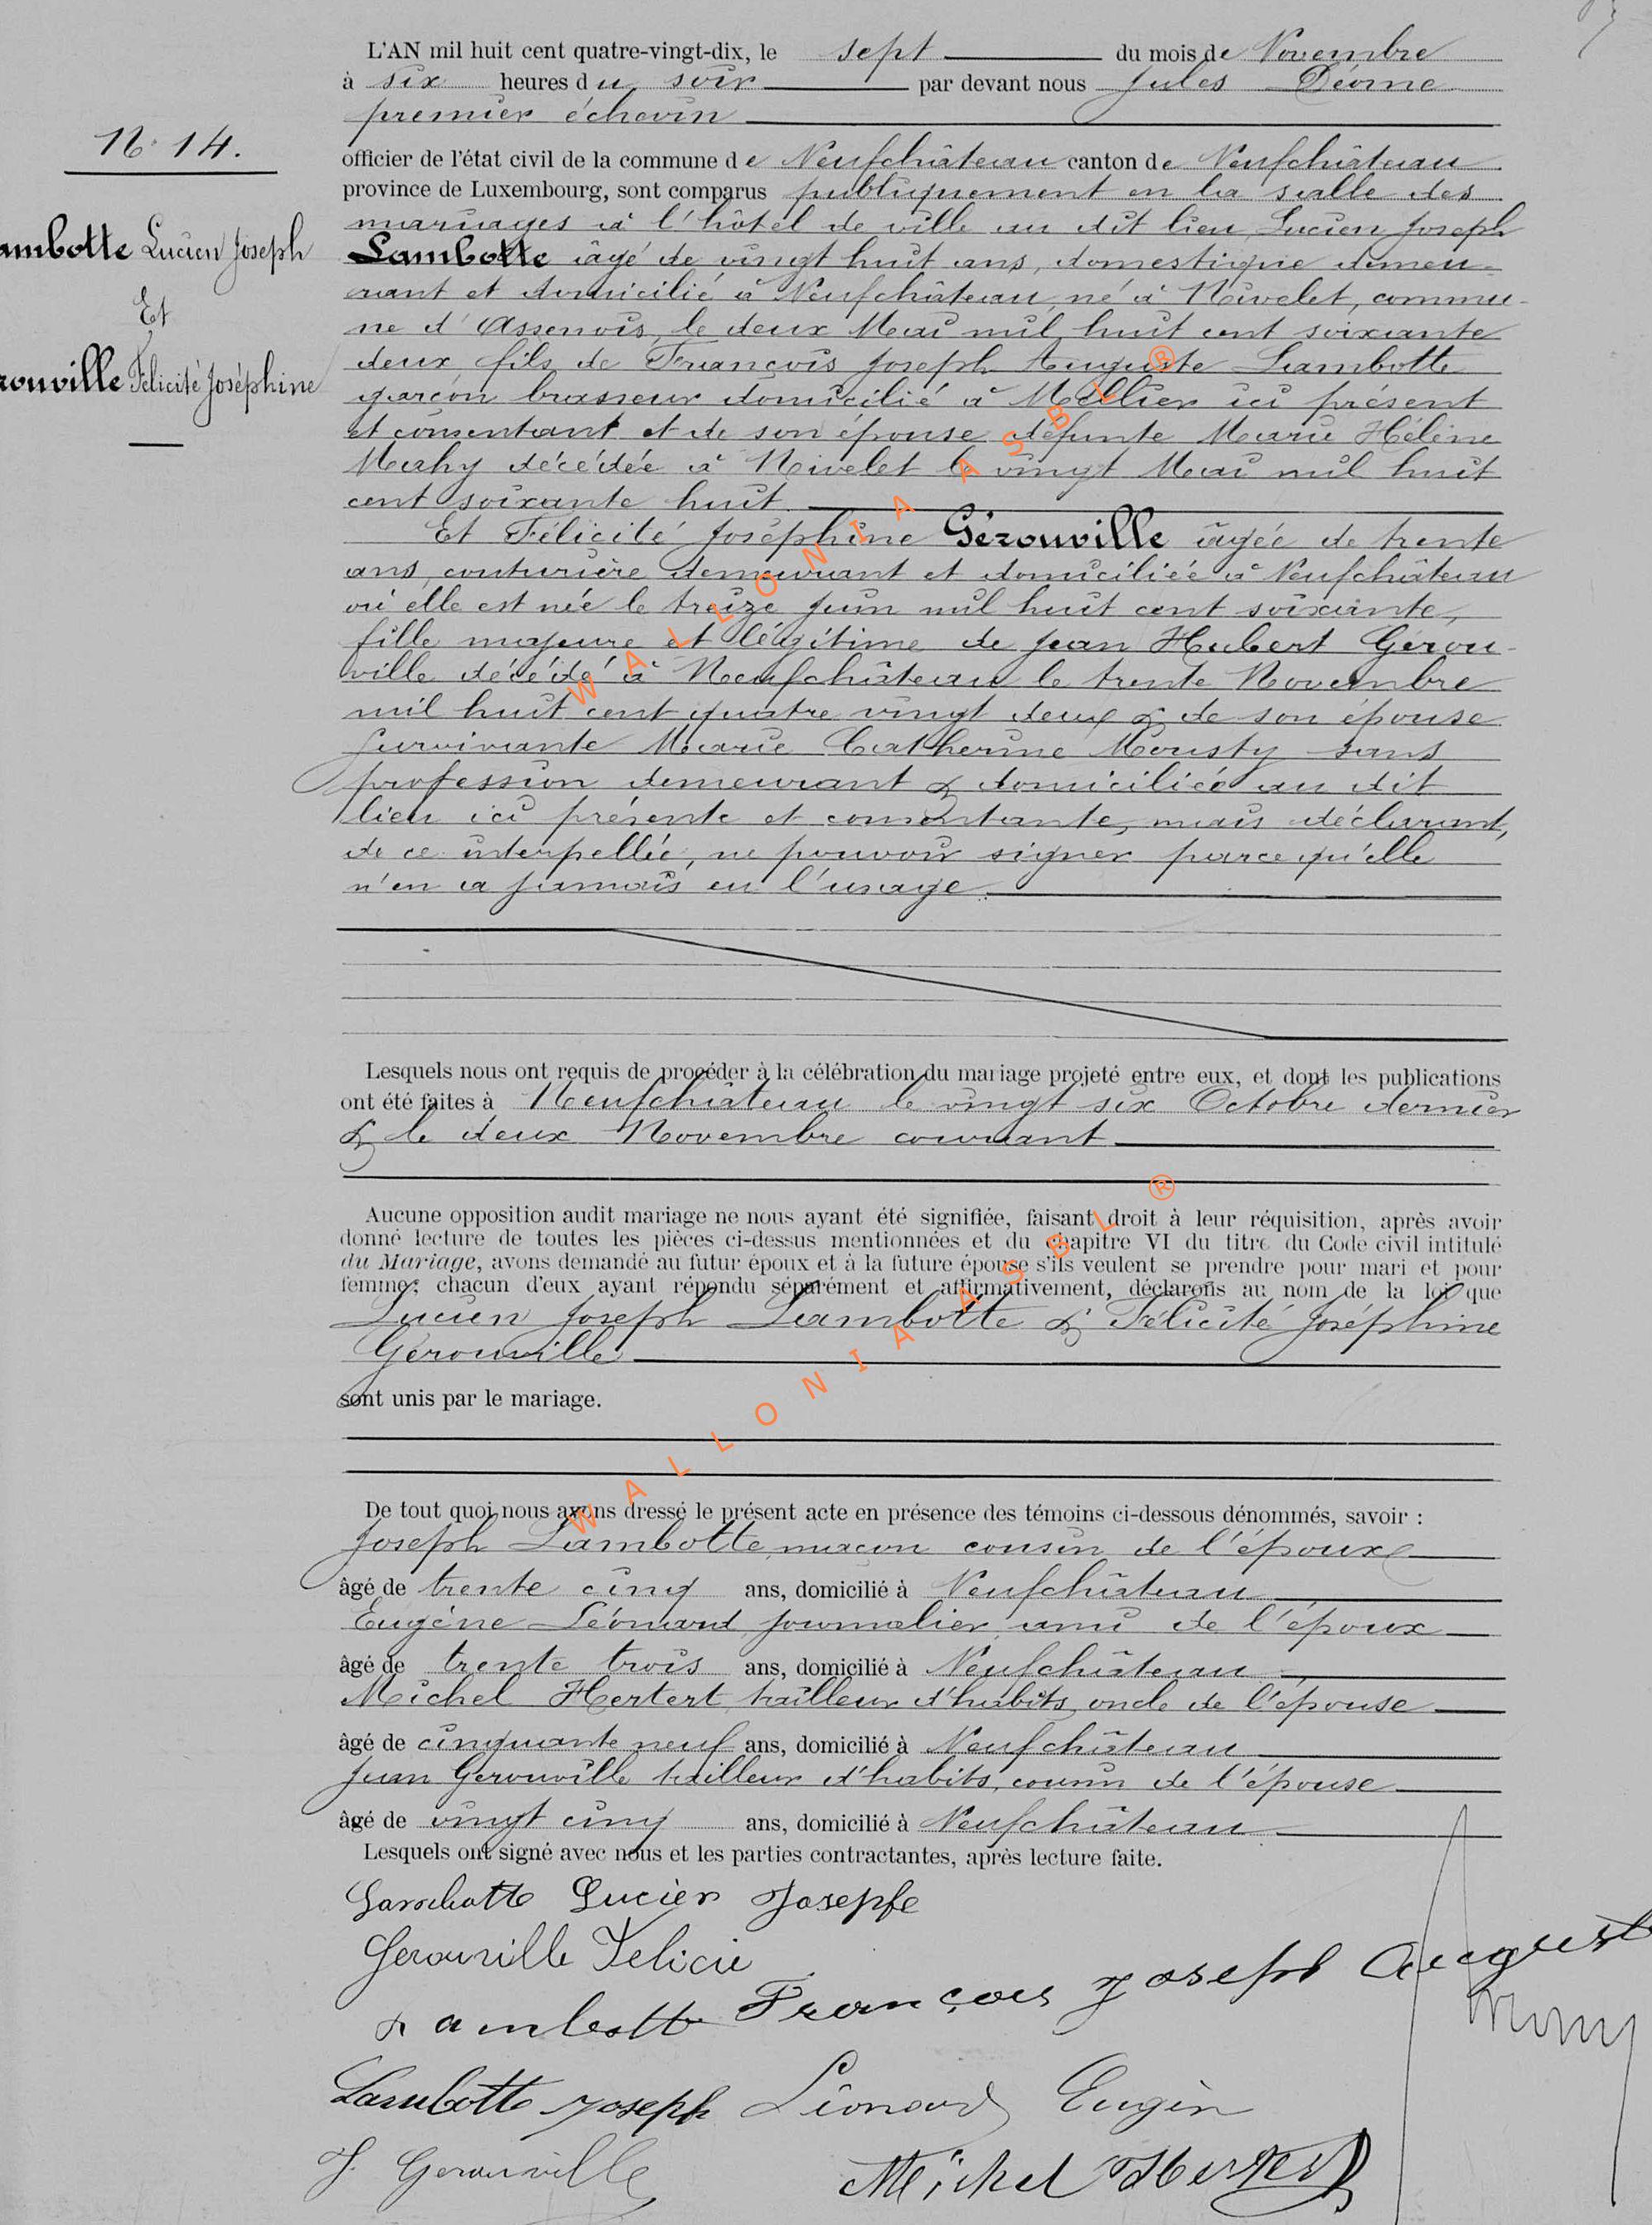 L'AN mil huit cent quatre-vingt-dix, le sept du mois de Novembre
à six heures du soir par devant nous Jules Déome
premier échevin
N° 14.
officier de l'état civil de la commune de Neufchâteau canton de Neufchâteau
province de Luxembourg, sont comparus publiquement en la salle des
mariages à l'hôtel de ville au dit lieu, Lucien Joseph
ambotte Lucien Joseph
Lambotte âgé de vingt huit ans, domestique demeu-
rant et domicilié à Neufchâteau, né à Nivelet, commu-
Et
ne d'Assenois, le deux Mai mil huit cent soixante
deux, fils de François Joseph Auguste Lambotte
rouville Félicité Joséphine
garçon brasseur domicilié à Mellier ici présent
et consentant et de son épouse défunte Marie Hélène
Mahy décédée à Nivelet le vingt Mai mil huit
cent soixante huit.
Et Félicité Joséphine Gérouville âgée de trente
ans, couturière demeurant et domiciliée à Neufchâteau
où elle est née le treize Juin mil huit cent soixante,
fille majeure et légitime de Jean Hubert Gérou-
ville décédé à Neufchâteau le trente Novembre
mil huit cent quatre vingt deux & de son épouse
survivante Marie Catherine Mousty sans
profession demeurant & domiciliée au dit
lieu ici présente et consentante, mais déclarant,
de ce interpellée, ne pouvoir signer parce qu'elle
n'en a jamais eu l'usage.
Lesquels nous ont requis de procéder à la célébration du mariage projeté entre eux, et dont les publications
ont été faites à Neufchâteau le vingt six Octobre dernier
& le deux Novembre courant
Aucune opposition audit mariage ne nous ayant été signifiée, faisant droit à leur réquisition, après avoir
donné lecture de toutes les pièces ci-dessus mentionnées et du chapitre VI du titre du Code civil intitulé
du Mariage, avons demandé au futur époux et à la future épouse s'ils veulent se prendre pour mari et pour
femme; chacun d'eux ayant répondu séparément et affirmativement, déclarons au nom de la loi que
Lucien Joseph Lambotte & Félicité Joséphine
Gérouville
sont unis par le mariage.
De tout quoi nous avons dressé le présent acte en présence des témoins ci-dessous dénommés, savoir :
Joseph Lambotte, maçon cousin de l'époux
âgé de trente cinq ans, domicilié à Neufchâteau
Eugène Léonard, journalier, ami de l'époux
âgé de trente trois ans, domicilié à Neufchâteau
Michel Hertert, tailleur d'habits, oncle de l'épouse
âgé de cinquante neuf ans, domicilié à Neufchâteau
Jean Gerouville tailleur d'habits, cousin de l'épouse
âgé de vingt cinq ans, domicilié à Neufchâteau
Lesquels ont signé avec nous et les parties contractantes, après lecture faite.
Lambotte Lucien Josephe
Gerouville Felicie
Lambotte François Joseph August
Lambotte Joseph Léonard Eugèn
J. Gerouville Michel Hertert
WALLONIA ASBL ®
WALLONIA ASBL ®